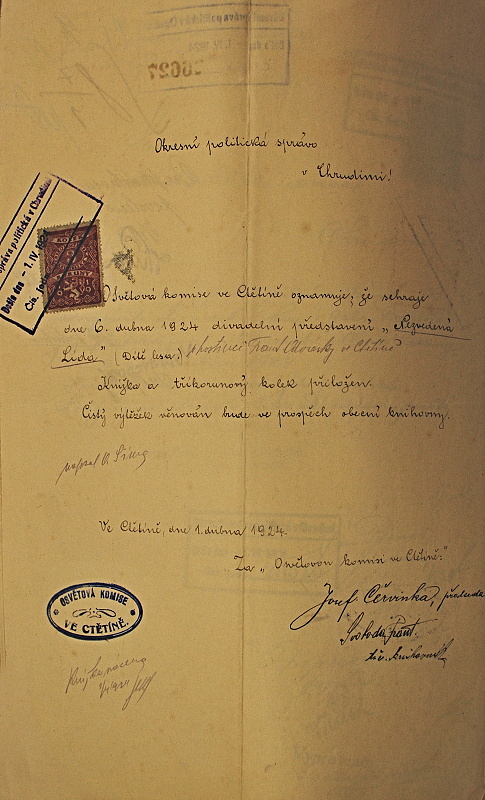 20027
Okresní politická správo
v Chrudimi!
správa politická v Chrudimi
Došlo dne - 1. IV. 1924
Osvětová komise ve Ctětíně oznamuje, že sehraje
dne 6. dubna 1924 divadelní představení „Nezvedená
Lída" (Dítě lesa.) v hostinci Frant. ve Ctětíně
Knížka a tříkorunový kolek přiložen.
Čistý výtěžek věnován bude ve prospěch obecní knihovny.
napsal
Ve Ctětíně, dne 1. dubna 1924.
Za „Osvětovou komisi ve Ctětíně:"
Josef Červinka, předseda
Svoboda Frant.
knihovník
OSVĚTOVÁ KOMISE
VE CTĚTÍNĚ.
Knížka vrácena